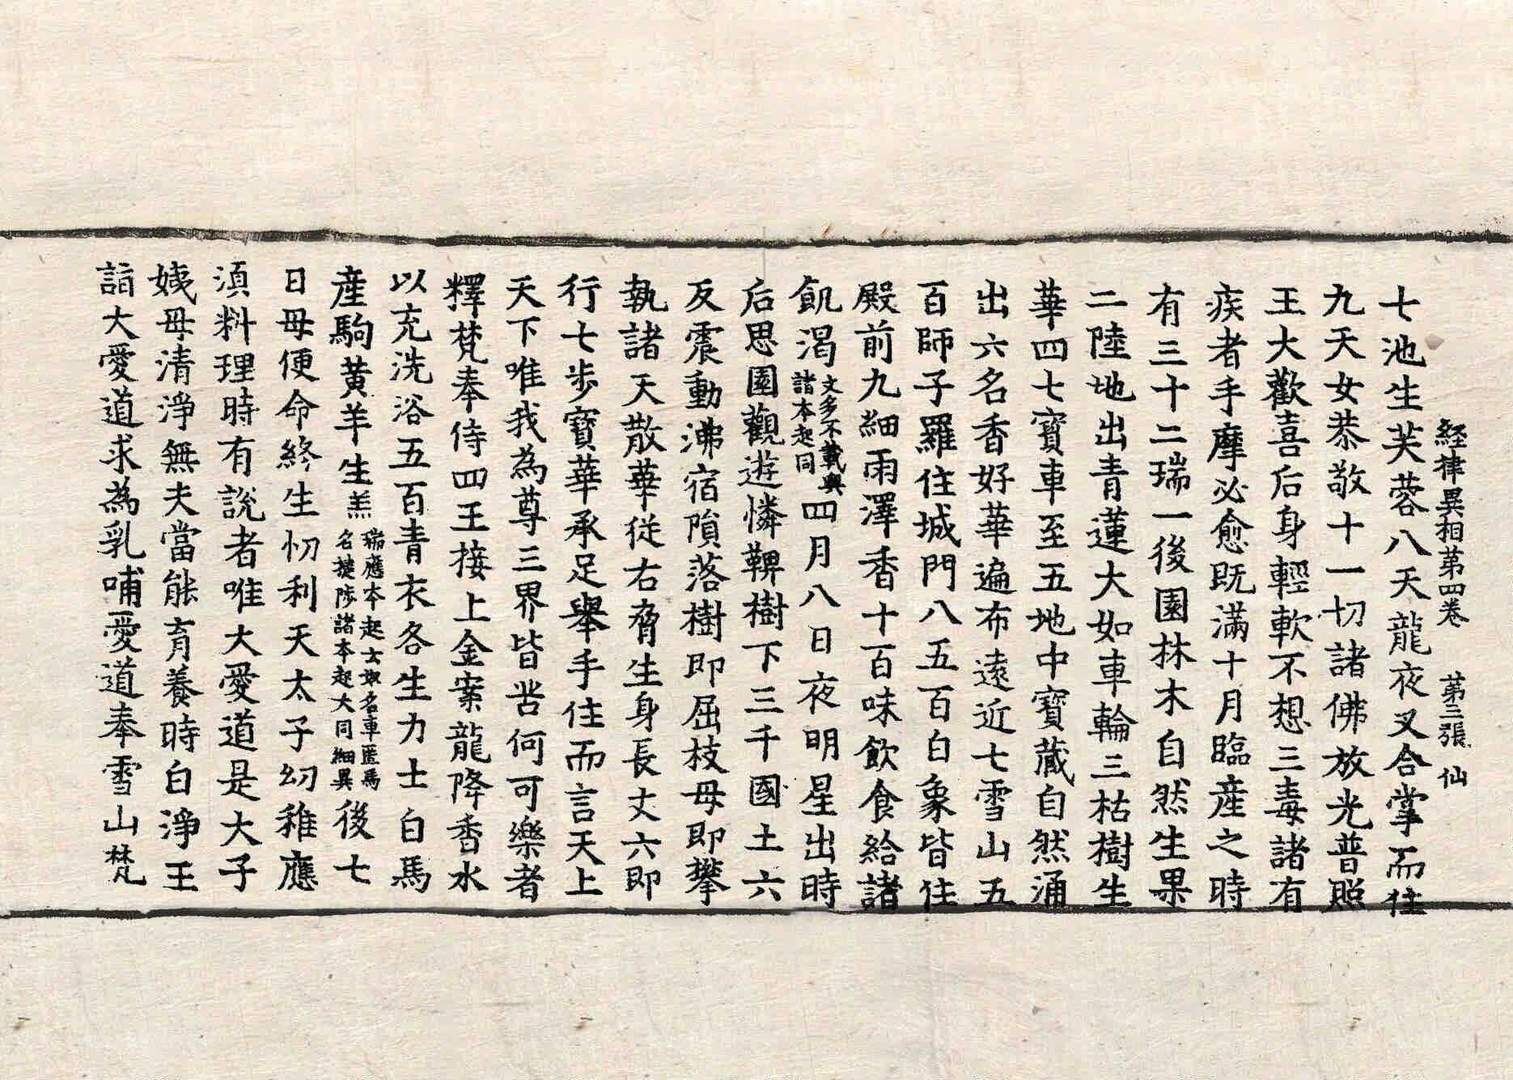 経律異相第四卷 第三張 仙
七池生芙蓉八天龍夜叉合掌而住
九天女恭敬十一切諸佛放光普照
王大歡喜后身輕軟不想三毒諸有
疾者手摩必愈既滿十月臨産之時
有三十二瑞一後園林木自然生果
二陸地出青蓮大如車輪三枯樹生
華四七寶車至五地中寶藏自然涌
出六名香好華遍布遠近七雪山五
百師子羅住城門八五百白象皆住
殿前九細雨澤香十百味飲食給諸
飢渴文多不載與諸本起同四月八日夜明星出時
后思園觀遊憐鞞樹下三千國土六
反震動沸宿隕落樹即屈枝母即攀
執諸天散華從右脅生身長丈六即
行七步寶華承足舉手住而言天上
天下唯我為尊三界皆苦何可樂者
釋梵奉侍四王接上金案龍降香水
以充洗浴五百青衣各生力士白馬
産駒黄羊生羔瑞應本起云奴名車匿馬名揵陟諸本起大同細異後七
日母便命終生忉利天太子幼稚應
湏料理時有說者唯大愛道是大子
姨母清淨無夫當能育養時白淨王
詣大愛道求為乳哺愛道奉雪山梵